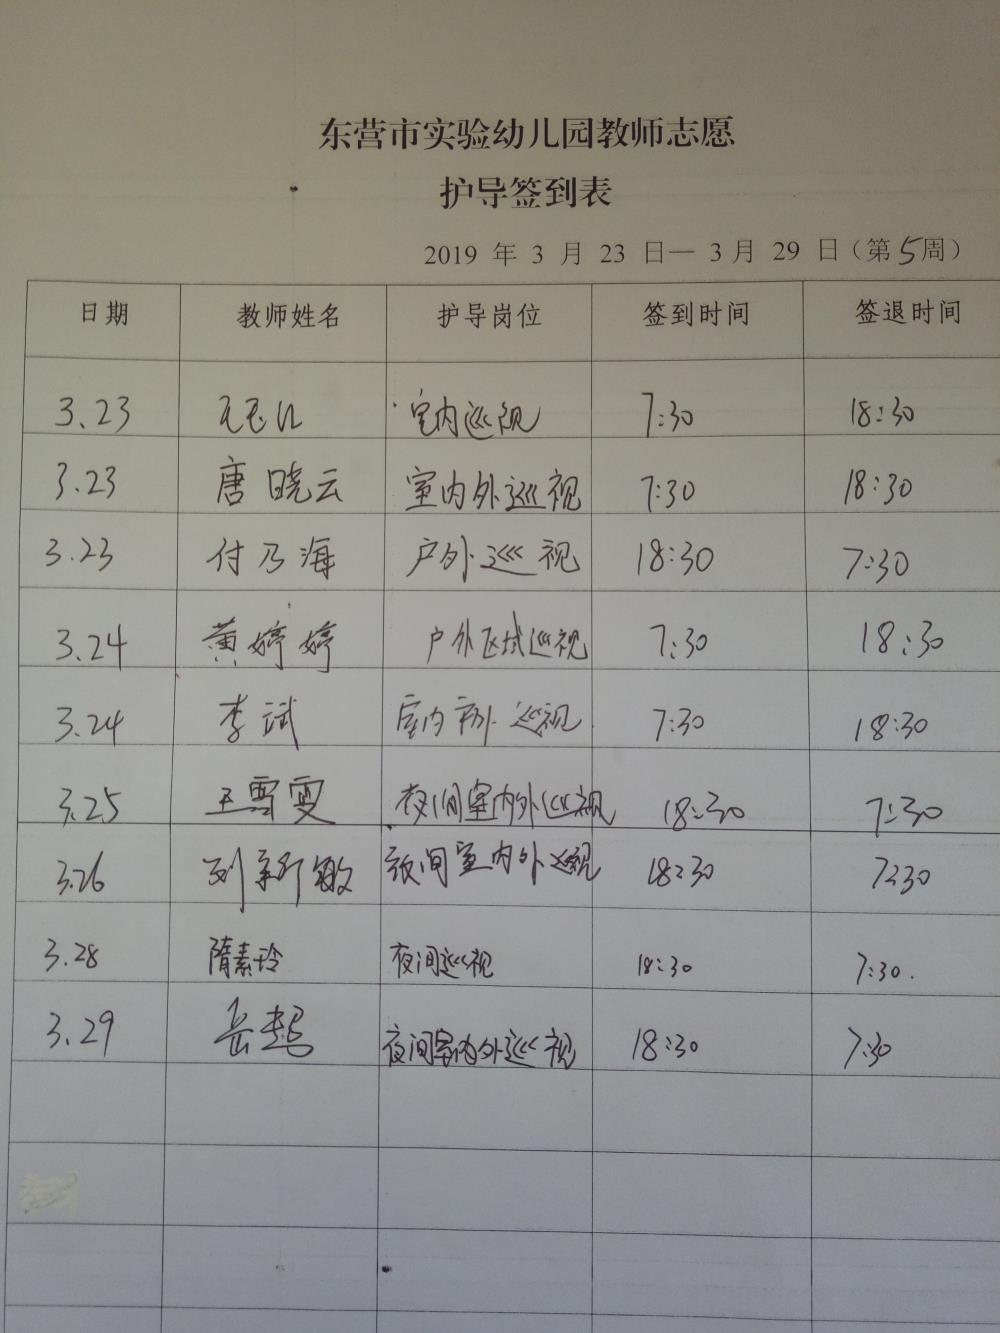 东营市实验幼儿园教师志愿
护导签到表
2019 年 3 月 23 日— 3 月 29 日（第5周）
日期 教师姓名 护导岗位 签到时间 签退时间
3.23 室内巡视 7:30 18:30
3.23 唐晓云 室内外巡视 7:30 18:30
3.23 付乃海 户外巡视 18:30 7:30
3.24 黄婷婷 户外区域巡视 7:30 18:30
3.24 李斌 室内室外巡视 7:30 18:30
3.25 王雪雯 夜间室内外巡视 18:30 7:30
3.26 刘新敏 夜间室内外巡视 18:30 7:30
3.28 隋素玲 夜间巡视 18:30 7:30.
3.29 岳 夜间室内外巡视 18:30 7:30